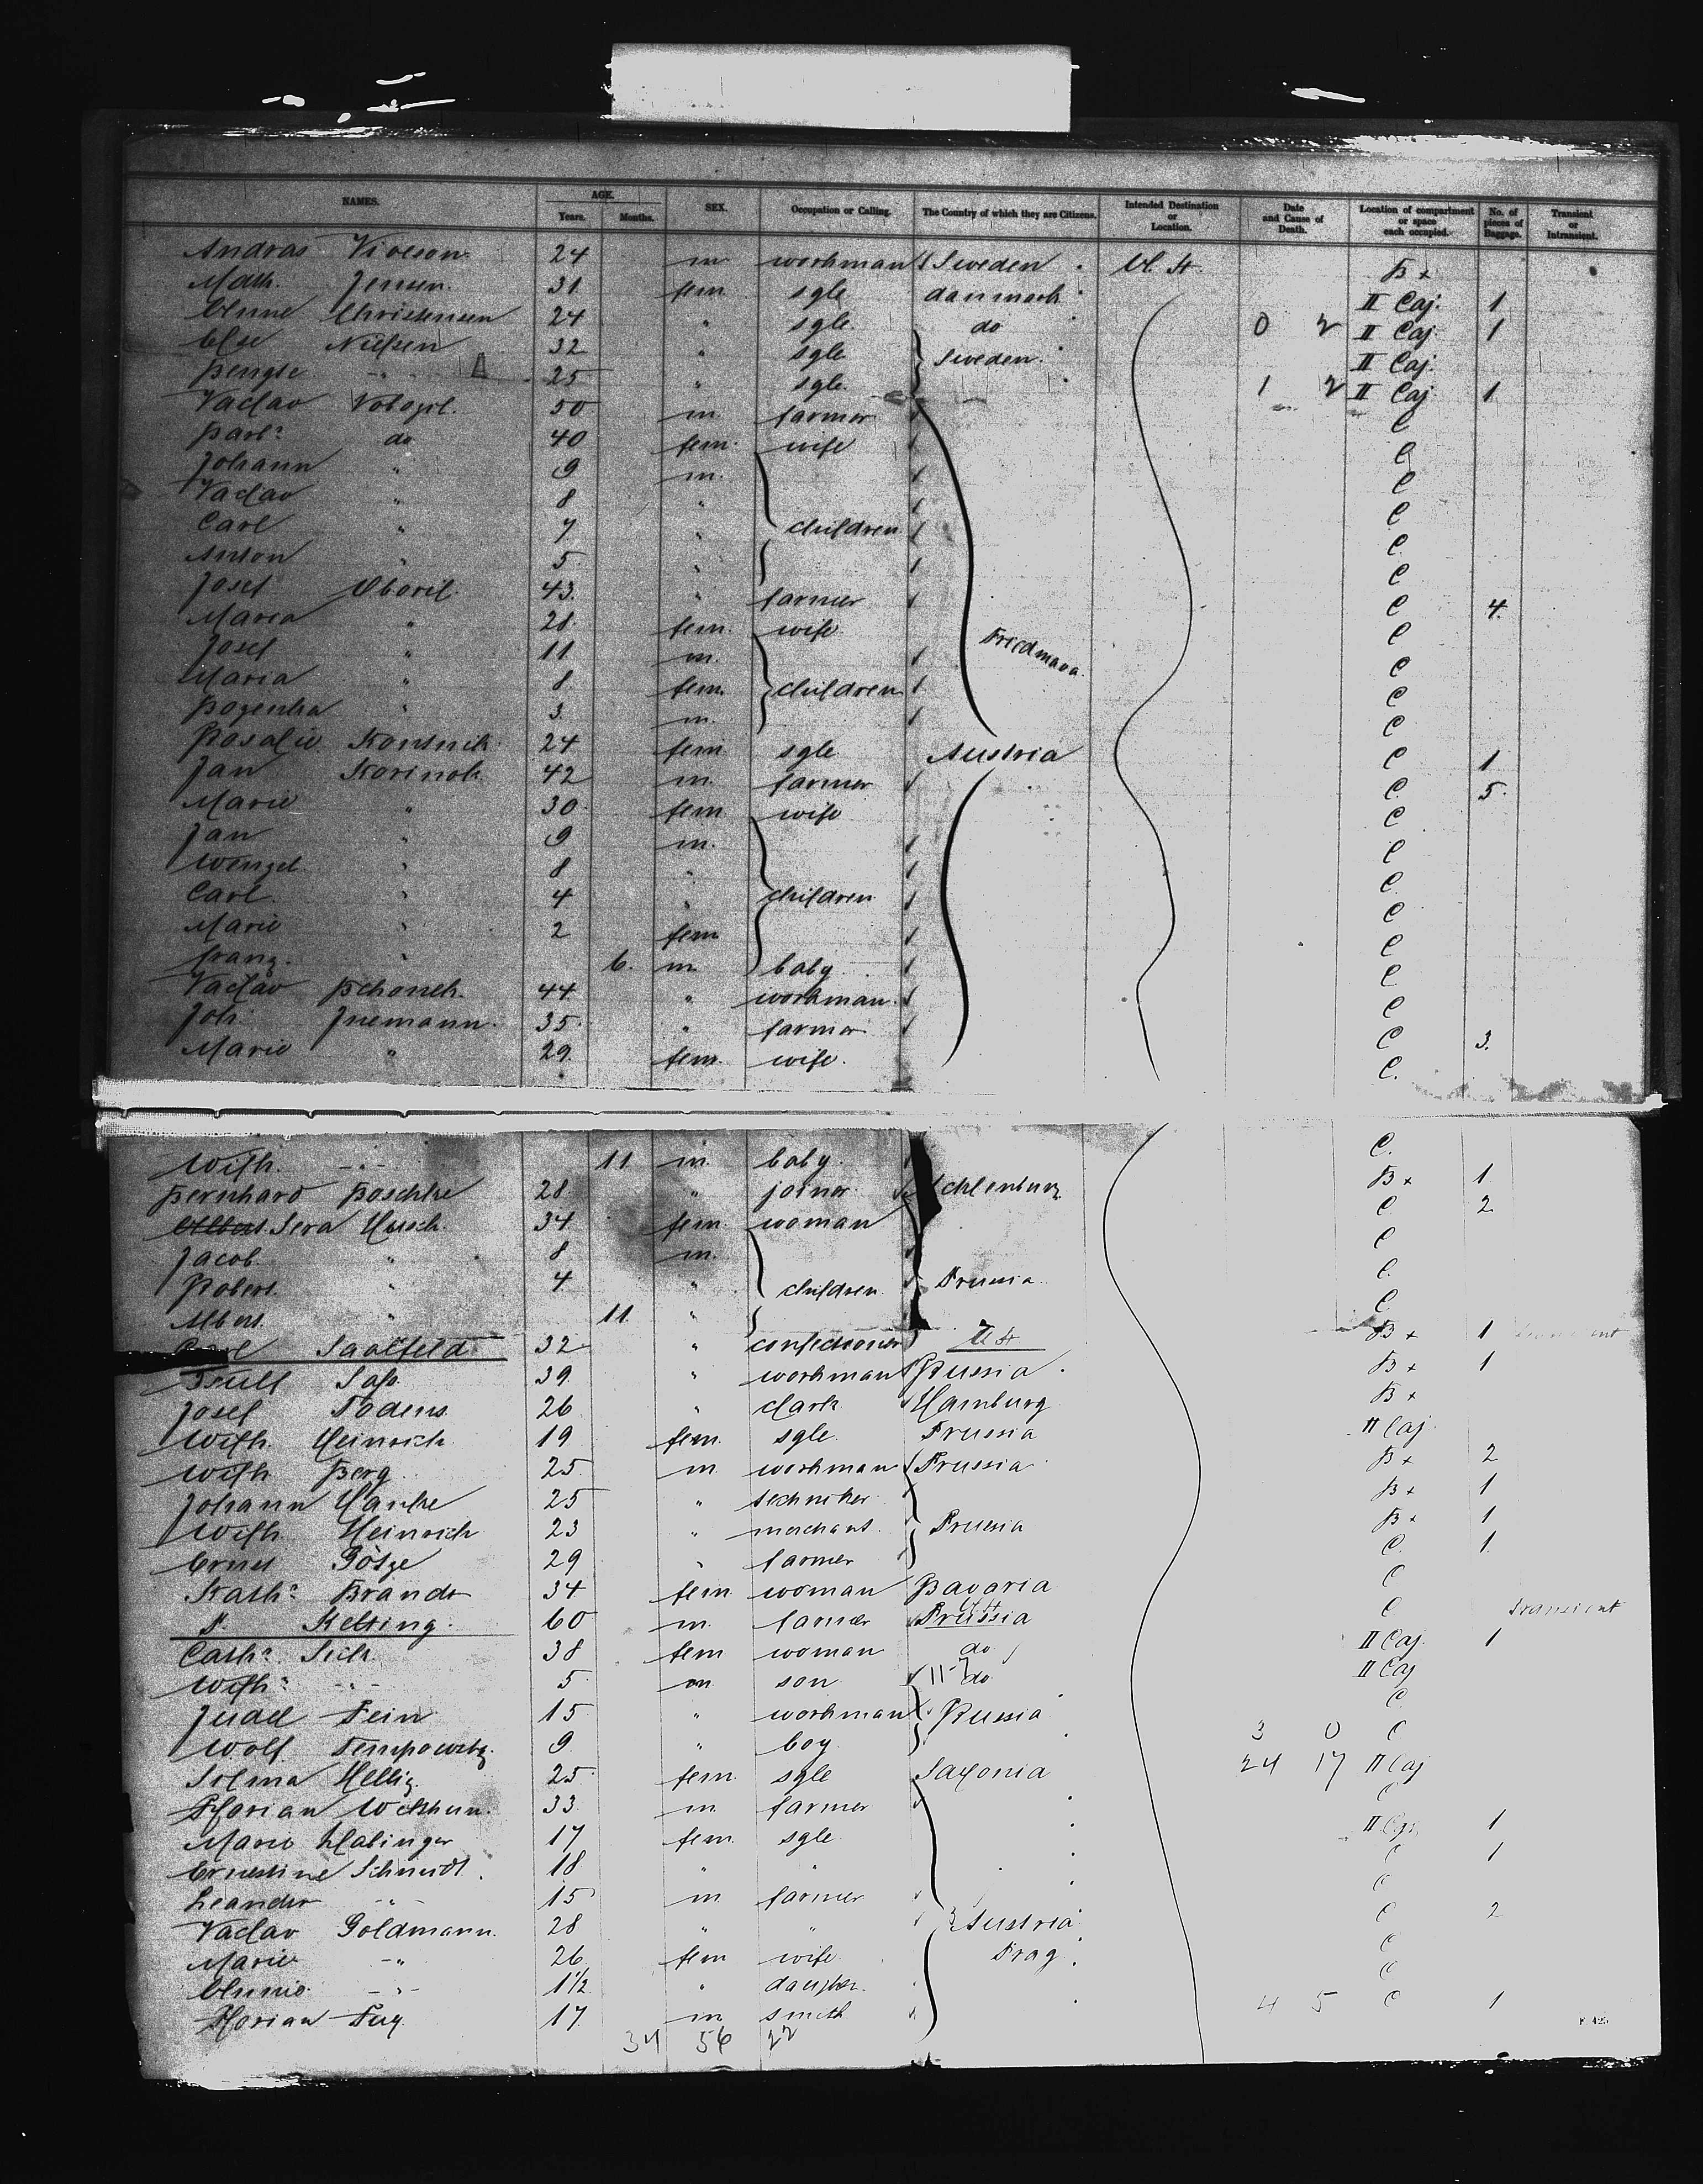 NAMES. AGE. Years. Months. SEX. Occupation or Calling. The Country of which they are Citizens. Intended Destination or Location. Date and Cause of Death. Location of compartment or space each occupied. No. of pieces of Baggage. Transient or Intransient.
Andras 24 m workman Sweden U. St. B x
Math. Jensen. 31 fem. sgle danmark II Caj. 1
Anne Christensen 24 " sgle. do 0 2 II Caj. 1
Else Nielsen 32 " sgle Sweden. II Caj.
Bengte -"- 25 " sgle. 1 2 II Caj 1
Vaclav 50 m. farmer C
Barb.a do 40 fem. wife C
Johann " 9 m. C
Vaclav " 8 " C
Carl " 7 " children C
Anton " 5 " C
Josef Oboril. 43. " farmer C 4.
Maria " 28. fem. wife. C
Josef " 11 m. C
Maria " 8. fem. children C
Bozenka " 3. m. C
Rosalie 24 fem. sgle Austria C 1
Jan Korinek 42 m. farmer C. 5.
Marie " 30. fem wife C
Jan " 9 m. C
Wenzel " 8 " C
Carl. " 4 " children C
Marie " 2 fem C
franz. " 6. m. baby C
Vaclav 44 " workman. C
Joh. 35. " farmer C 3.
Marie " 29. fem. wife. C.
Wilh. -"- 11 m. baby. C.
Bernhard Poschke 28 " joiner B x 1
Sera Hirsch 34 fem. woman C 2
Jacob. " 8 m. C
Robert. " 4. " children. Prussia. C.
Albert. " 11 " C
Saalfeld 32 " confectioner U St B x 1 transient
39. " workman Russia B x 1
Josef Todens. 26 " clark Hamburg B x
Wilh. Heinrich 19 fem. sgle. Prussia II Caj.
Wilh. Berg. 25. m. workman Prussia B x 2
Johann Hanke 25 " techniker B x 1
Wilh. Heinrich 23 " merchant. Prussia B x 1
Ernst Götze 29 " farmer C. 1
Kath.a Brandt 34 fem woman Bavaria C
Kelting. 60 m. farmer Prussia C transient
Cath.a Sich. 38 fem woman do II Caj. 1
Wilh.a -"- 5. m son do II Caj
Judel Fein 15 " workman Russia C
Wolf 9. " boy. 3 0 C
Selma Hellig. 25. fem. sgle Saxonia 24 17 II Caj
Florian 33. m. farmer C
Marie 17 fem. sgle II Caj. 1
Ernestine Schmidt. 18 " " C 1
Leander -"- 15 m farmer C
Vaclav Goldmann. 28 " " Austria C 2
Marie -"- 26 fem wife Prag. C
Annie -"- 1½ " daughter. C
Florian 17. m smith 4 5 C 1
34 56 22
F. 425